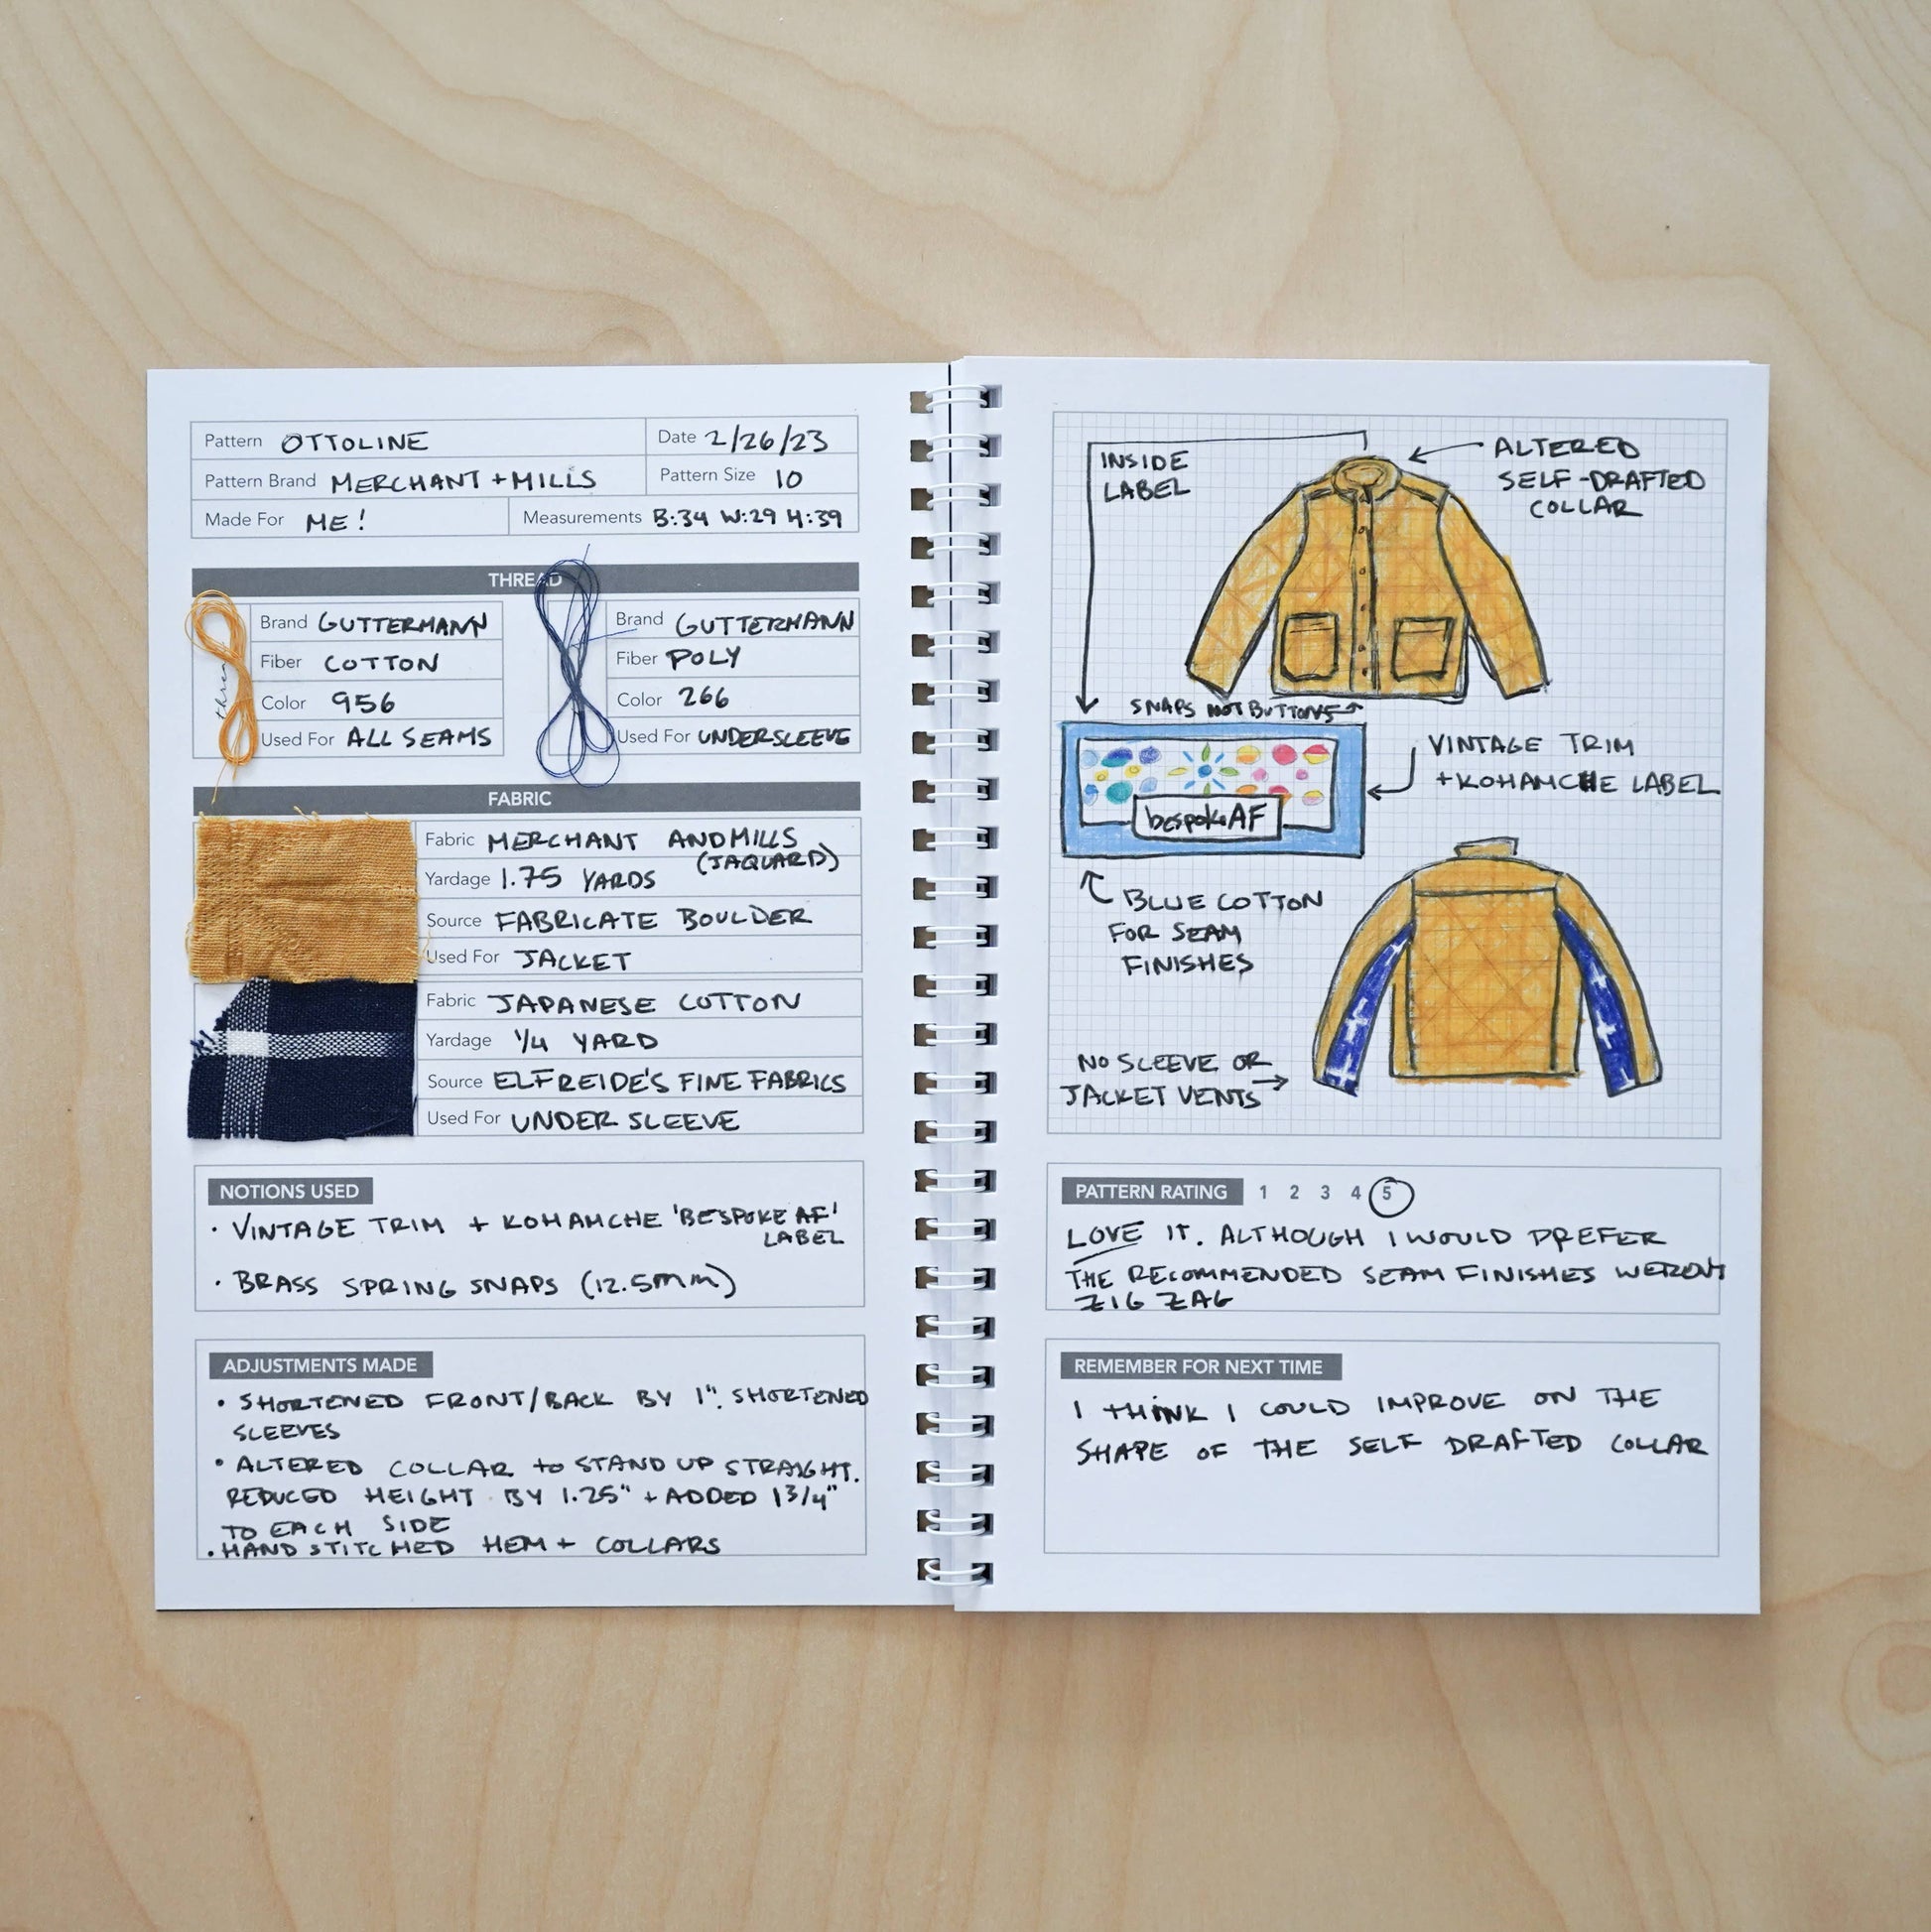 Pattern OTTOLINE
Date 2/26/23
Pattern Brand MERCHANT + MILLS
Pattern Size 10
Made For ME!
Measurements B:34 W:29 H:39
THREAD
Brand GUTTERMANN
Fiber COTTON
Color 956
Used For ALL SEAMS
Brand GUTTERMANN
Fiber POLY
Color 266
Used For UNDERSLEEVE
FABRIC
Fabric MERCHANT AND MILLS
(JAQUARD)
Yardage 1.75 YARDS
Source FABRICATE BOULDER
Used For JACKET
Fabric JAPANESE COTTON
Yardage 1/4 YARD
Source ELFREIDE'S FINE FABRICS
Used For UNDER SLEEVE
NOTIONS USED
• VINTAGE TRIM + KOHAMCHE 'BESPOKE AF'
LABEL
• BRASS SPRING SNAPS (12.5mm)
ADJUSTMENTS MADE
• SHORTENED FRONT/BACK BY 1". SHORTENED
SLEEVES
• ALTERED COLLAR to STAND UP STRAIGHT.
REDUCED HEIGHT BY 1.25" + ADDED 1 3/4"
TO EACH SIDE
• HAND STITCHED HEM + COLLARS
INSIDE
LABEL
ALTERED
SELF-DRAFTED
COLLAR
SNAPS NOT BUTTONS
VINTAGE TRIM
+ KOHAMCHE LABEL
bespoke AF
BLUE COTTON
FOR SEAM
FINISHES
NO SLEEVE OR
JACKET VENTS
PATTERN RATING 1 2 3 4 5
LOVE IT. ALTHOUGH I WOULD PREFER
THE RECOMMENDED SEAM FINISHES WEREN'T
ZIG ZAG
REMEMBER FOR NEXT TIME
I THINK I COULD IMPROVE ON THE
SHAPE OF THE SELF DRAFTED COLLAR